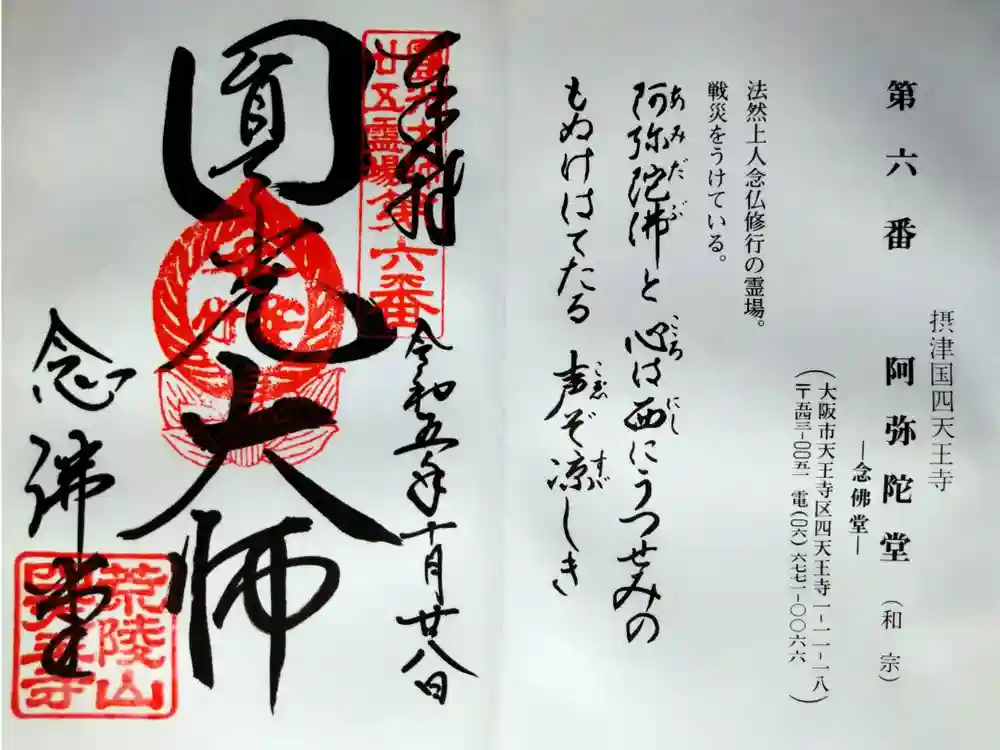 摂津国四天王寺
第六番 阿弥陀堂（和宗）
―念佛堂―
（大阪市天王寺区四天王寺一-一一-一八
〒五四三-〇〇五一 電(〇六)六七七一-〇〇六六）
法然上人念仏修行の霊場。
戦災をうけている。
阿弥陀佛と心は西にうつせみの
あみだぶ
こころ
にし
もぬけはてたる声ぞ凉しき
こゑ
すゞ
奉拝
圓光大師
廿五霊場第六番
令和五年十月廿八日
圓光大師
念佛堂
荒陵山
四天王寺